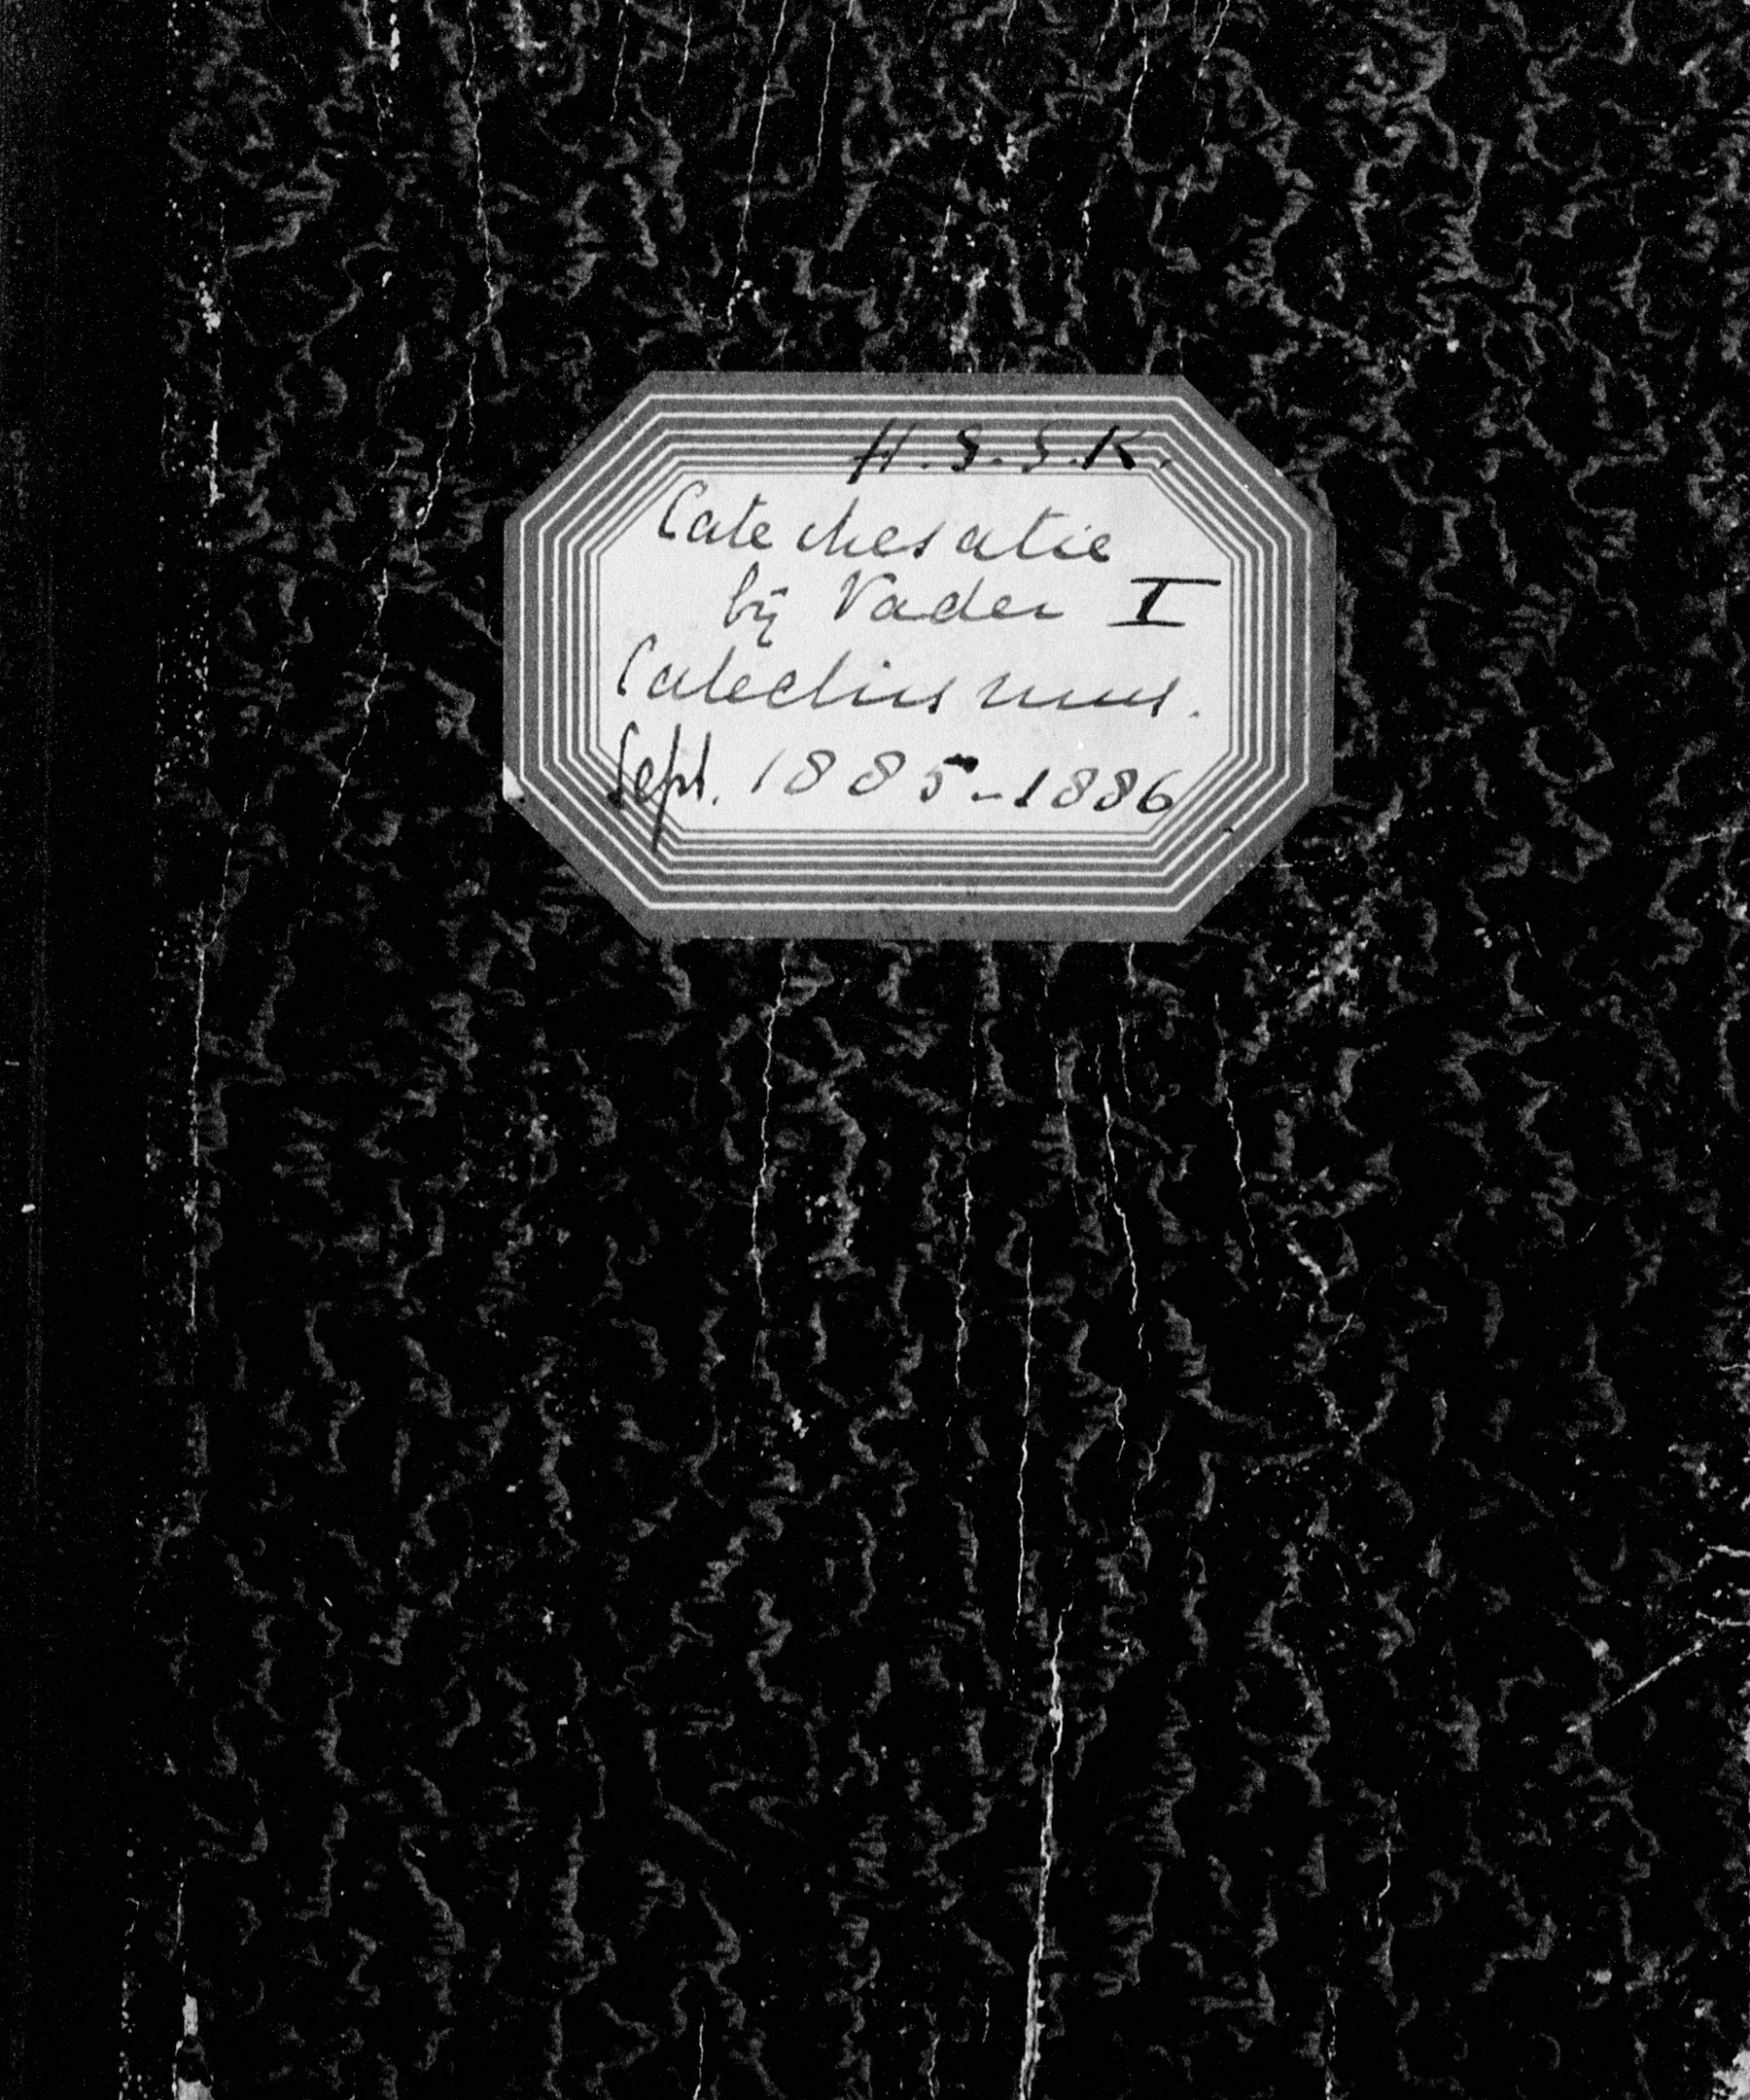 H.S.S.K.
Catechesatie
bij Vader I
Catechismus.
Sept. 1885-1886